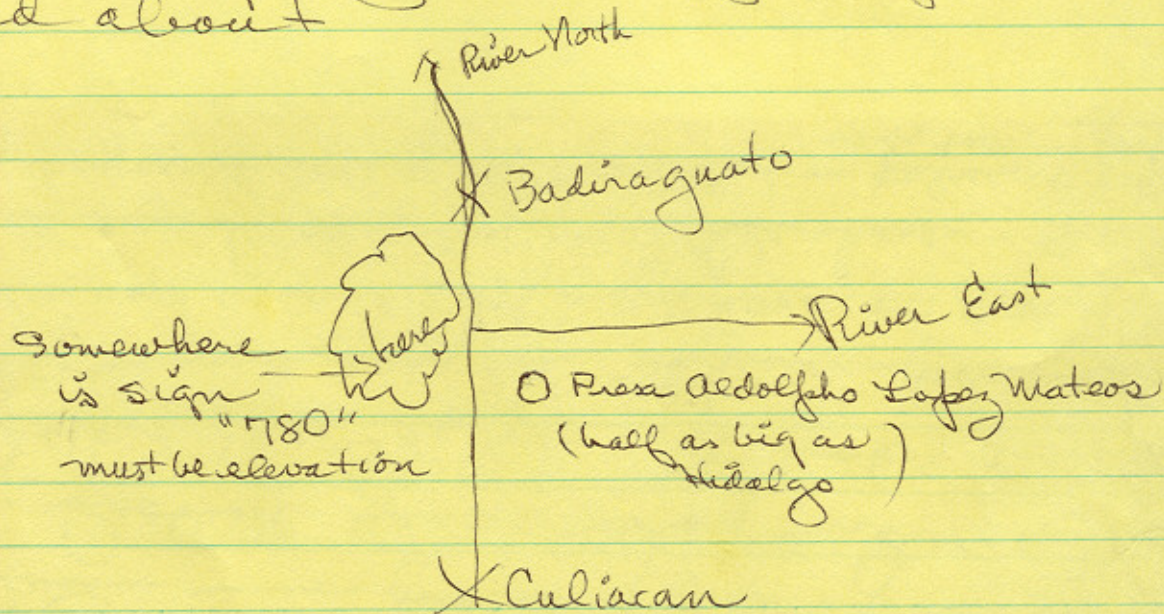 d about
River North
Badiraguato
here
River East
Somewhere
is sign
"780"
must be elevation
O Presa Aldolpho Lopez Mateos
(half as big as
Hidalgo)
Culiacan